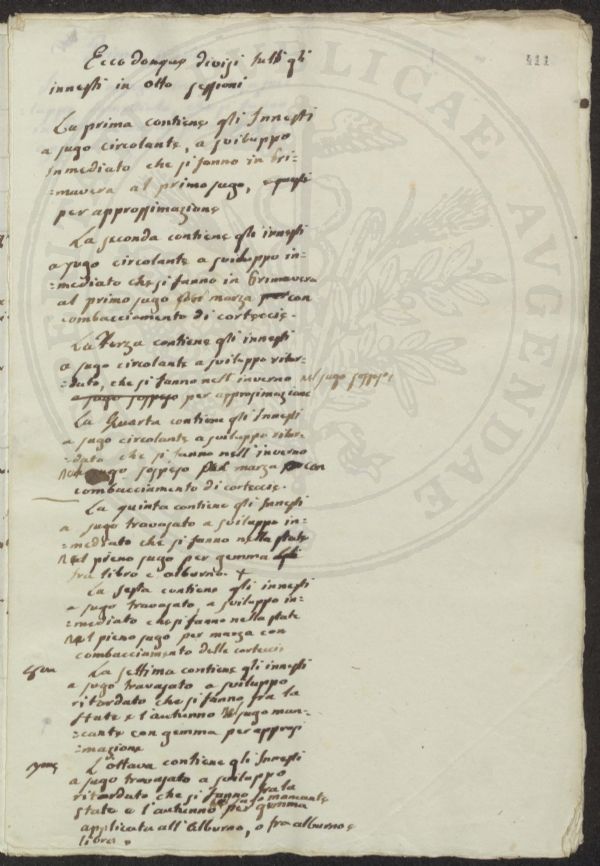 111
Ecco donque divisi tutti gli
innesti in otto sessioni
La prima contiene gli Innesti
a sugo circolante, a sviluppo
Inmediato che si fanno in Pri=
=mavera al primo sugo,
per approssimazione
La seconda contiene gli innesti
a sugo circolante a sviluppo in=
=mediato che si fanno in Primavera
al primo sugo marza con
combacciamento di corteccie.
La Terza contiene gli innesti
a sugo circolante a sviluppo ritar=
=dato, che si fanno nell'inverno nel sugo sospeso,
a sugo sospeso per approsimazione
La Quarta contiene gli Innesti
a sugo circolante a sviluppo ritar=
=dato che si fanno nell'inverno
sugo sospeso per marza con
combacciamento di corteccie.
La quinta contiene gli Innesti
a sugo travasato a sviluppo in=
=mediato che si fanno nella state
nel pieno sugo per gemma
fra libro e alburno. +
La sesta contiene gli innesti
a sugo travasato, a sviluppo in=
=mediato che si fanno nella state
nel pieno sugo per marza con
combacciamento delle corteccie
La settima contiene gli innesti
a sugo travasato a sviluppo
ritardato che si fanno fra la
state e l'autunno sugo man=
=cante con gemma per approsi
=mazione
L'ottava contiene gli Innesti
a sugo travasato a sviluppo
ritardato che si fanno fra la
state e l'autunno sugo mancante per gemma
applicata all'Alburno, o fra alburno e
libro.
PUBLICAE
AUGENDAE